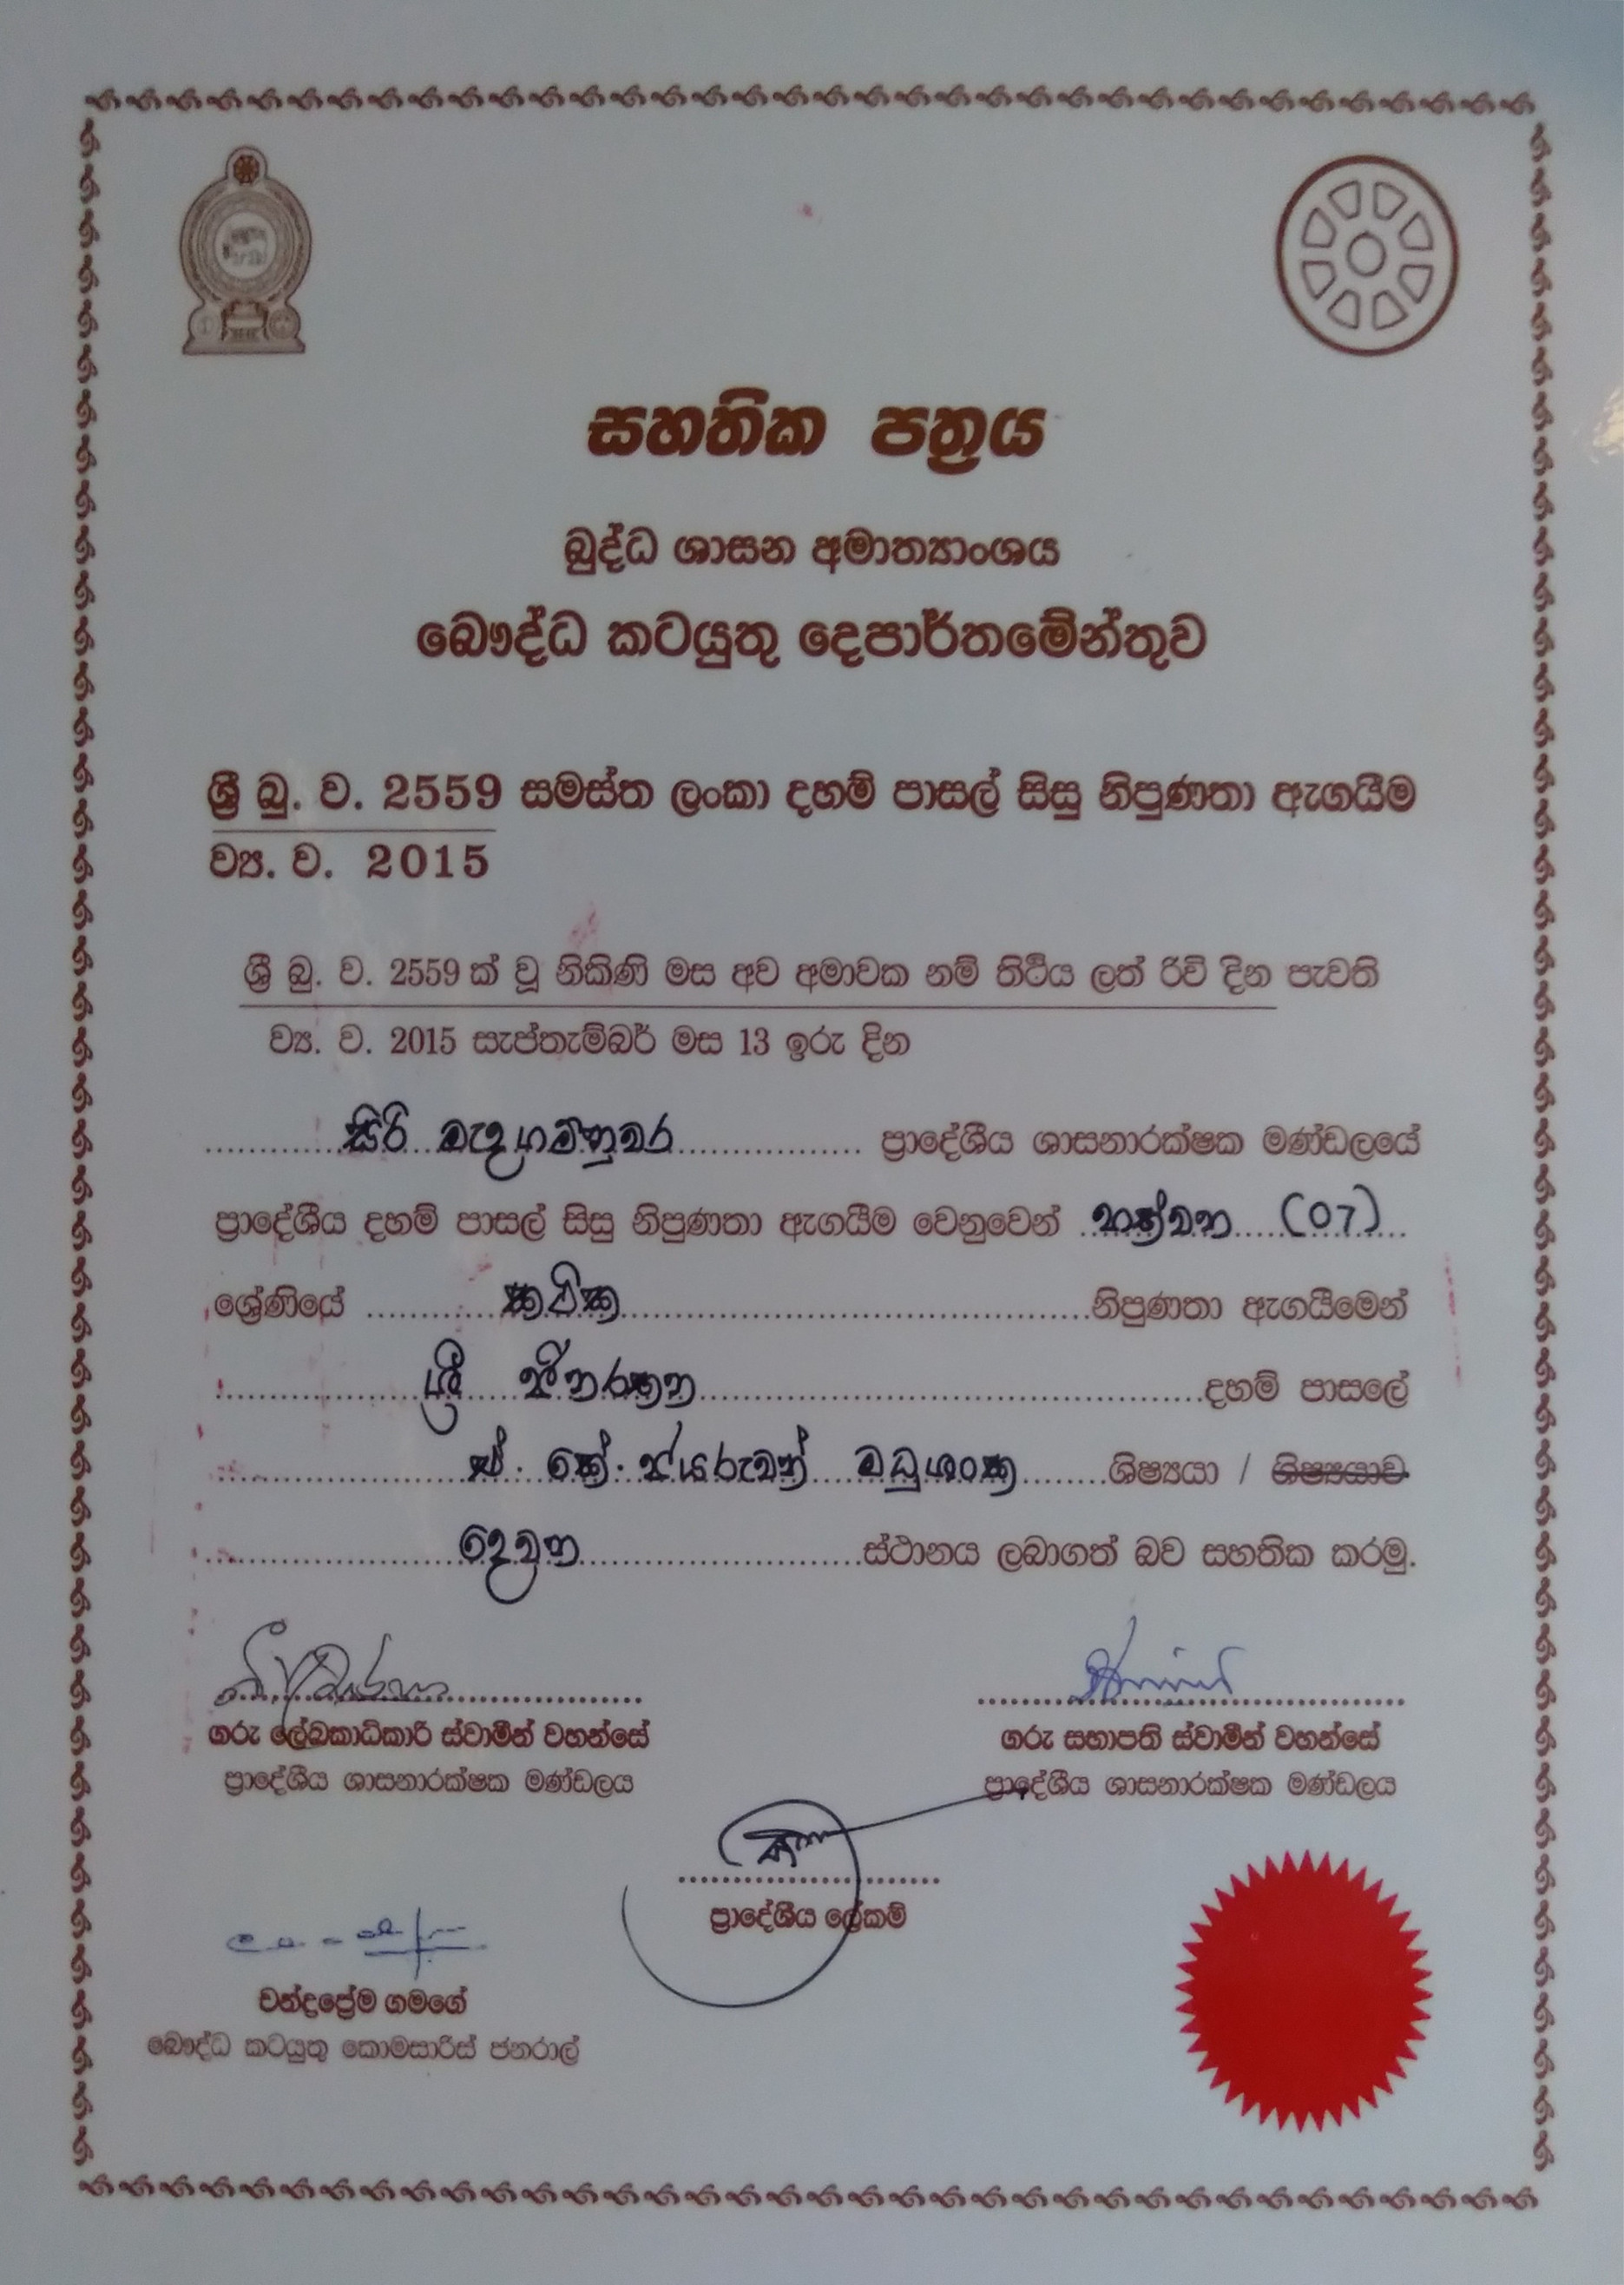 සහතික පත්‍රය
බුද්ධ ශාසන අමාත්‍යාංශය
බෞද්ධ කටයුතු දෙපාර්තමේන්තුව
ශ්‍රී බු. ව. 2559 සමස්ත ලංකා දහම් පාසල් සිසු නිපුණතා ඇගයීම
ව්‍ය. ව. 2015
ශ්‍රී බු. ව. 2559 ක් වූ නිකිණි මස අව අමාවක නම් තිථිය ලත් රිවි දින පැවති
ව්‍ය. ව. 2015 සැප්තැම්බර් මස 13 ඉරු දින
සිරි මැදගම්නුවර ප්‍රාදේශීය ශාසනාරක්ෂක මණ්ඩලයේ
ප්‍රාදේශීය දහම් පාසල් සිසු නිපුණතා ඇගයීම වෙනුවෙන් හත්වන (07)
ශ්‍රේණියේ කථික නිපුණතා ඇගයීමෙන්
ශ්‍රී ජිනරතන දහම් පාසලේ
කේ. ජයරුවන් මධුශංක ශිෂ්‍යයා / ශිෂ්‍යයාව
දෙවන ස්ථානය ලබාගත් බව සහතික කරමු.
ගරු ලේඛකාධිකාරි ස්වාමීන් වහන්සේ
ප්‍රාදේශීය ශාසනාරක්ෂක මණ්ඩලය
ගරු සභාපති ස්වාමීන් වහන්සේ
ප්‍රාදේශීය ශාසනාරක්ෂක මණ්ඩලය
ප්‍රාදේශීය ලේකම්
චන්ද්‍රප්‍රේම ගමගේ
බෞද්ධ කටයුතු කොමසාරිස් ජනරාල්